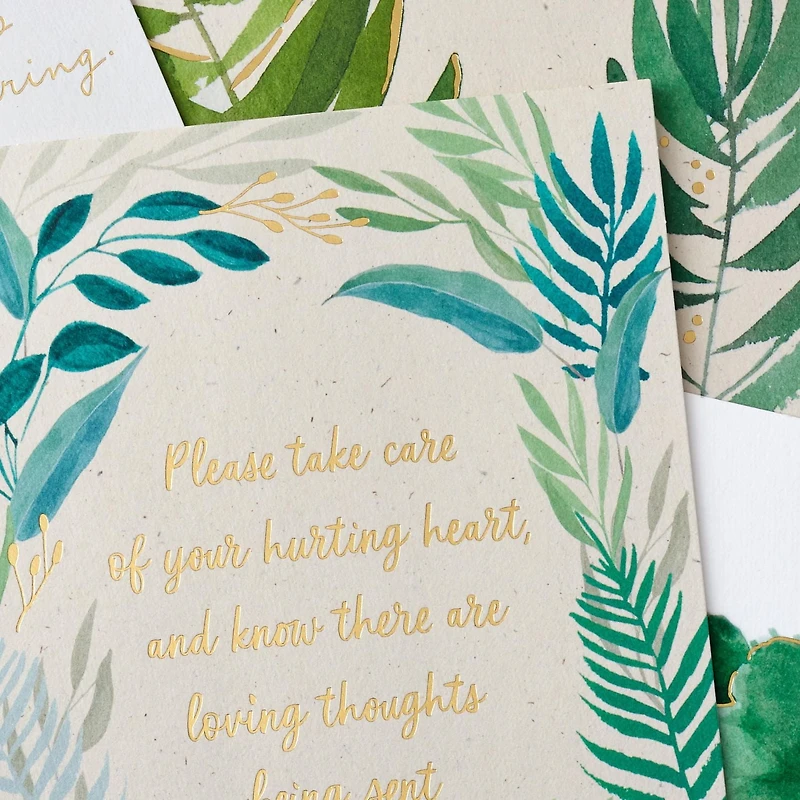 Please take care
of your hurting heart,
and know there are
loving thoughts
being sent